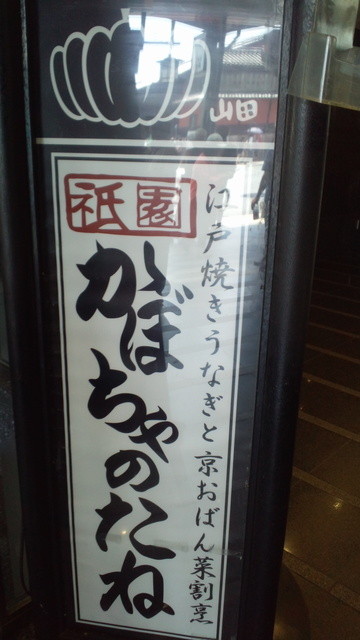 山田
祇園
江戸焼きうなぎと京おばん菜割烹
かぼちゃのたね